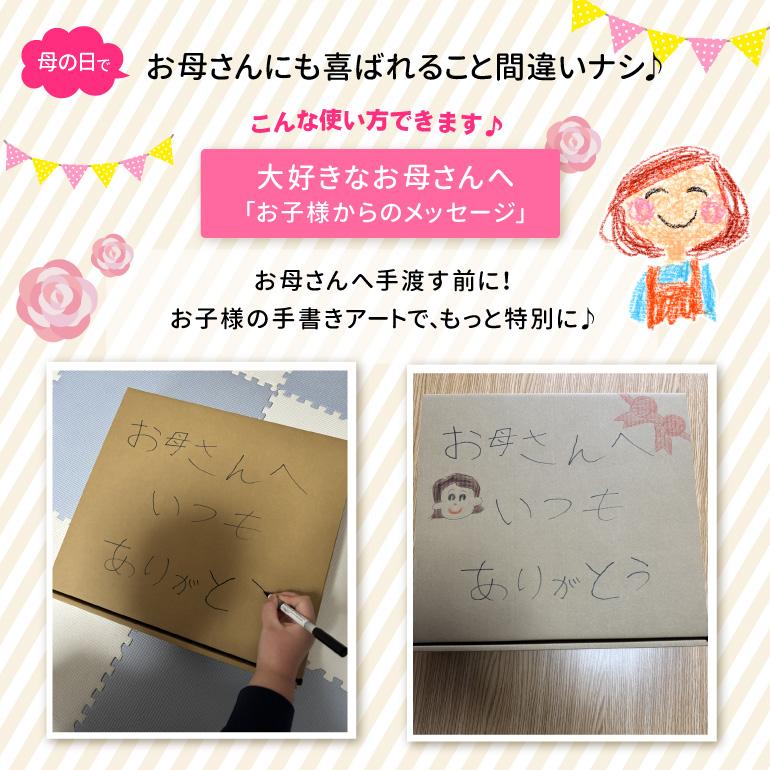 母の日で
お母さんにも喜ばれること間違いナシ♪
こんな使い方できます♪
大好きなお母さんへ
「お子様からのメッセージ」
お母さんへ手渡す前に!
お子様の手書きアートで、もっと特別に♪
お母さんへ
いつも
ありがと
お母さんへ
いつも
ありがとう